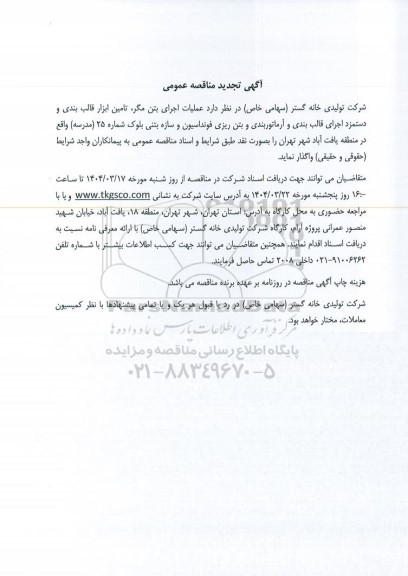 آگهی تجدید مناقصه عمومی
شرکت تولیدی خانه گستر (سهامی خاص) در نظر دارد عملیات اجرای بتن مگر، تامین ابزار قالب بندی و
دستمزد اجرای قالب بندی و آرماتوربندی و بتن ریزی فونداسیون و سازه بتنی بلوک شماره ۲۵ (مدرسه) واقع
در منطقه یافت آباد شهر تهران را بصورت نقد طبق شرایط و اسناد مناقصه عمومی به پیمانکاران واجد شرایط
(حقوقی و حقیقی) واگذار نماید.
متقاضیان می توانند جهت دریافت اسناد شرکت در مناقصه از روز شنبه مورخه ۱۴۰۴/۰۳/۱۷ تا ساعت
۱۶:۰۰ روز پنجشنبه مورخه ۱۴۰۴/۰۳/۲۲ به آدرس سایت شرکت به نشانی www.tkgsco.com و یا با
مراجعه حضوری به محل کارگاه به آدرس: استان تهران، شهر تهران، منطقه ۱۸، یافت آباد، خیابان شهید
منصور عمرانی پروژه آرام، کارگاه شرکت تولیدی خانه گستر (سهامی خاص) با ارائه معرفی نامه نسبت به
دریافت اسناد اقدام نمایند. همچنین متقاضیان می توانند جهت کسب اطلاعات بیشتر با شماره تلفن
۰۲۱-۹۱۰۰۶۲۶۲ داخلی ۲۰۰۸ تماس حاصل فرمایند.
هزینه چاپ آگهی مناقصه در روزنامه بر عهده برنده مناقصه می باشد.
شرکت تولیدی خانه گستر (سهامی خاص) در رد یا قبول هر یک و یا تمامی پیشنهادها با نظر کمیسیون
معاملات، مختار خواهد بود.
مرکز فرآوری اطلاعات پارس نماد داده ها
پایگاه اطلاع رسانی مناقصه و مزایده
۰۲۱-۸۸۳۴۹۶۷۰-۵